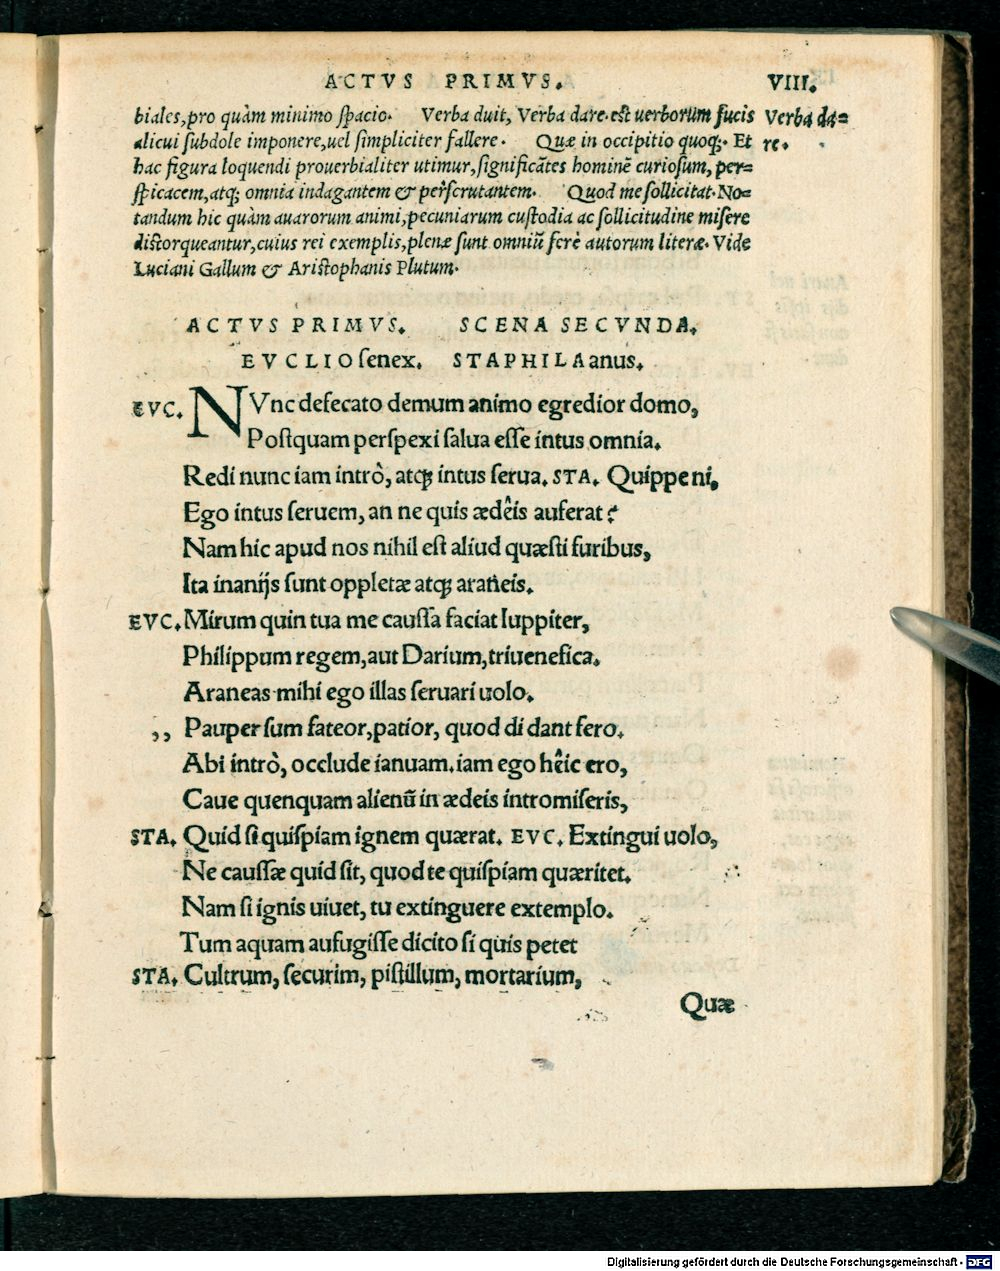 ACTVS PRIMVS. VIII.
biales, pro quàm minimo spacio. Verba duit, Verba dare. est uerborum fucis
alicui subdole imponere, uel simpliciter fallere. Quæ in occipitio quoq;. Et
hac figura loquendi prouerbialiter utimur, significātes hominē curiosum, per=
spicacem, atq; omnia indagantem & perscrutantem. Quod me sollicitat. No=
tandum hic quàm auarorum animi, pecuniarum custodia ac sollicitudine misere
distorqueantur, cuius rei exemplis, plenæ sunt omniū ferè autorum literæ. Vide
Luciani Gallum & Aristophanis Plutum.
Verba da=
re.
ACTVS PRIMVS. SCENA SECVNDA.
EVCLIO senex. STAPHILA anus.
EVC. NVnc defecato demum animo egredior domo,
Postquam perspexi salua esse intus omnia.
Redi nunc iam intrò, atq; intus serua. STA. Quippe ni,
Ego intus seruem, an ne quis ædêis auferat?
Nam hic apud nos nihil est aliud quæsti furibus,
Ita inanijs sunt oppletæ atq; araneis.
EVC. Mirum quin tua me caussa faciat Iuppiter,
Philippum regem, aut Darium, triuenefica.
Araneas mihi ego illas seruari uolo.
,, Pauper sum fateor, patior, quod di dant fero.
Abi intrò, occlude ianuam, iam ego hêic ero,
Caue quenquam alienū in ædeis intromiseris,
STA. Quid si quispiam ignem quærat. EVC. Extingui uolo,
Ne caussæ quid sit, quod te quispiam quæritet.
Nam si ignis uiuet, tu extinguere extemplo.
Tum aquam aufugisse dicito si quis petet
STA. Cultrum, securim, pistillum, mortarium,
Quæ
Digitalisierung gefördert durch die Deutsche Forschungsgemeinschaft - DFG